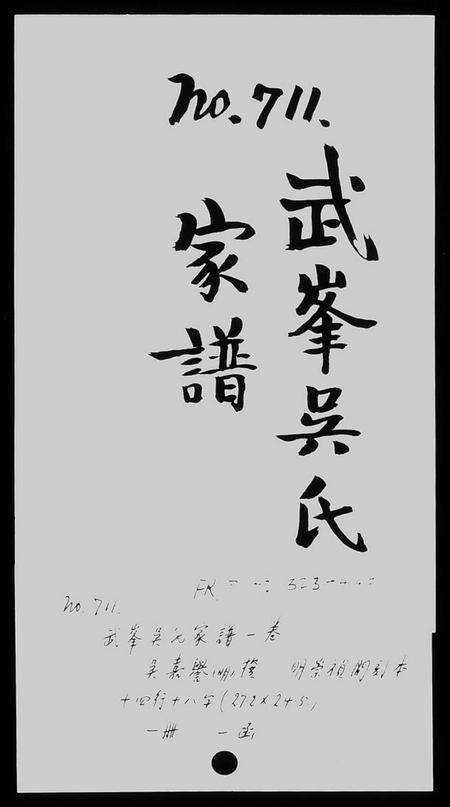 no.711.
武峯吳氏
家譜
no.711.
武峯吳氏家譜一卷
吳嘉譽(明)撰 明崇禎間刻本
十四行十八字(27.2×24.5)
一冊 一函